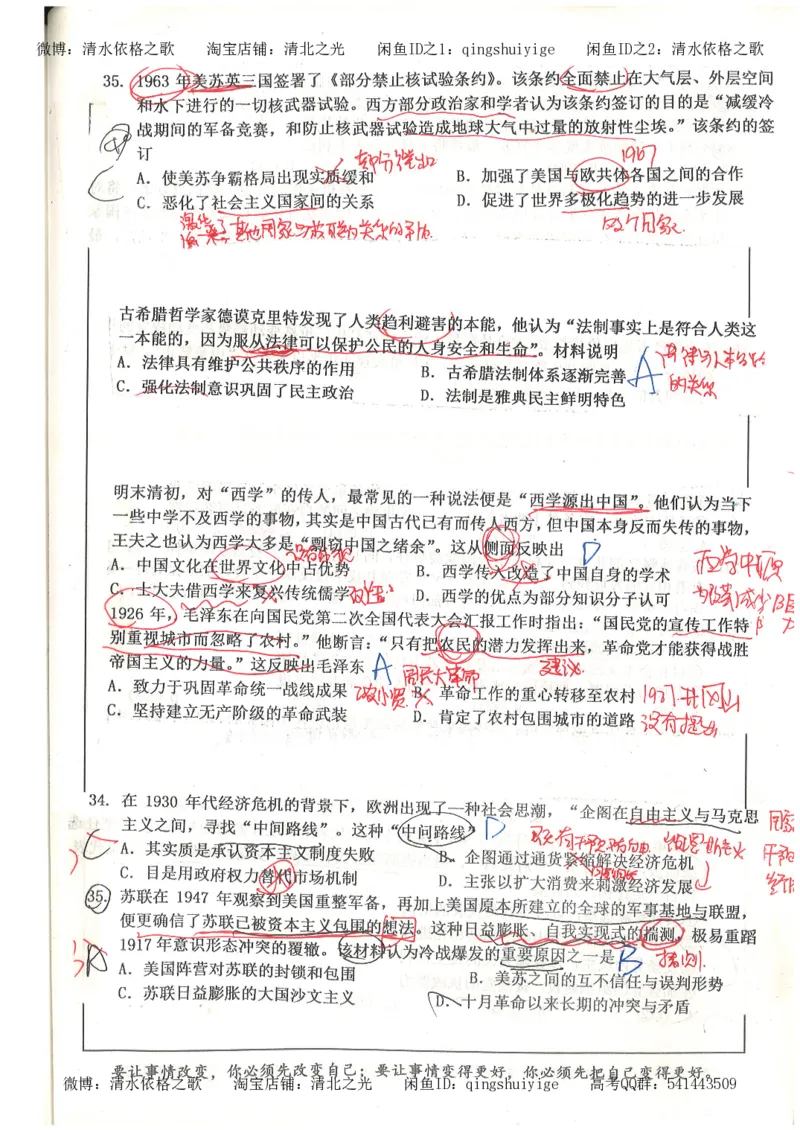 微博：清水依格之歌 淘宝店铺：清北之光 闲鱼ID之1：qingshuiyige 闲鱼ID之2：清水依格之歌
35. 1963 年美苏英三国签署了《部分禁止核试验条约》。该条约全面禁止在大气层、外层空间
和水下进行的一切核武器试验。西方部分政治家和学者认为该条约签订的目的是“减缓冷
战期间的军备竞赛，和防止核武器试验造成地球大气中过量的放射性尘埃。”该条约的签
订
1967
A．使美苏争霸格局出现实质缓和 B．加强了美国与欧共体各国之间的合作
C．恶化了社会主义国家间的关系 D．促进了世界多极化趋势的进一步发展
C
古希腊哲学家德谟克里特发现了人类趋利避害的本能，他认为“法制事实上是符合人类这
一本能的，因为服从法律可以保护公民的人身安全和生命”。材料说明
A．法律具有维护公共秩序的作用 B．古希腊法制体系逐渐完善
A
C．强化法制意识巩固了民主政治 D．法制是雅典民主鲜明特色
的关系
明末清初，对“西学”的传人，最常见的一种说法便是“西学源出中国”。他们认为当下
一些中学不及西学的事物，其实是中国古代已有而传人西方，但中国本身反而失传的事物，
王夫之也认为西学大多是“剽窃中国之绪余”。这从侧面反映出
D
A．中国文化在世界文化中占优势 B．西学传人改造了中国自身的学术
C．士大夫借西学来复兴传统儒学 D．西学的优点为部分知识分子认可
1926 年，毛泽东在向国民党第二次全国代表大会汇报工作时指出：“国民党的宣传工作特
别重视城市而忽略了农村。”他断言：“只有把农民的潜力发挥出来，革命党才能获得战胜
帝国主义的力量。”这反映出毛泽东
A
国民大革命
建议
A．致力于巩固革命统一战线成果 B．革命工作的重心转移至农村
1927井冈山
C．坚持建立无产阶级的革命武装 D．肯定了农村包围城市的道路
没有提出
34. 在 1930 年代经济危机的背景下，欧洲出现了一种社会思潮，“企图在自由主义与马克思
主义之间，寻找“中间路线”。这种“中间路线”
D
A．其实质是承认资本主义制度失败 B．企图通过通货紧缩解决经济危机
C
C．目是用政府权力替代市场机制 D．主张以扩大消费来刺激经济发展
35. 苏联在 1947 年观察到美国重整军备，再加上美国原本所建立的全球的军事基地与联盟，
便更确信了苏联已被资本主义包围的想法。这种日益膨胀、自我实现式的揣测，极易重蹈
1917 年意识形态冲突的覆辙。该材料认为冷战爆发的重要原因之一是
B
A．美国阵营对苏联的封锁和包围 B．美苏之间的互不信任与误判形势
C．苏联日益膨胀的大国沙文主义 D．十月革命以来长期的冲突与矛盾
要让事情改变，你必须先改变自己；要让事情变得更好，你必须先把自己变得更好。
微博：清水依格之歌 淘宝店铺：清北之光 闲鱼ID：qingshuiyige 高考QQ群：541443509